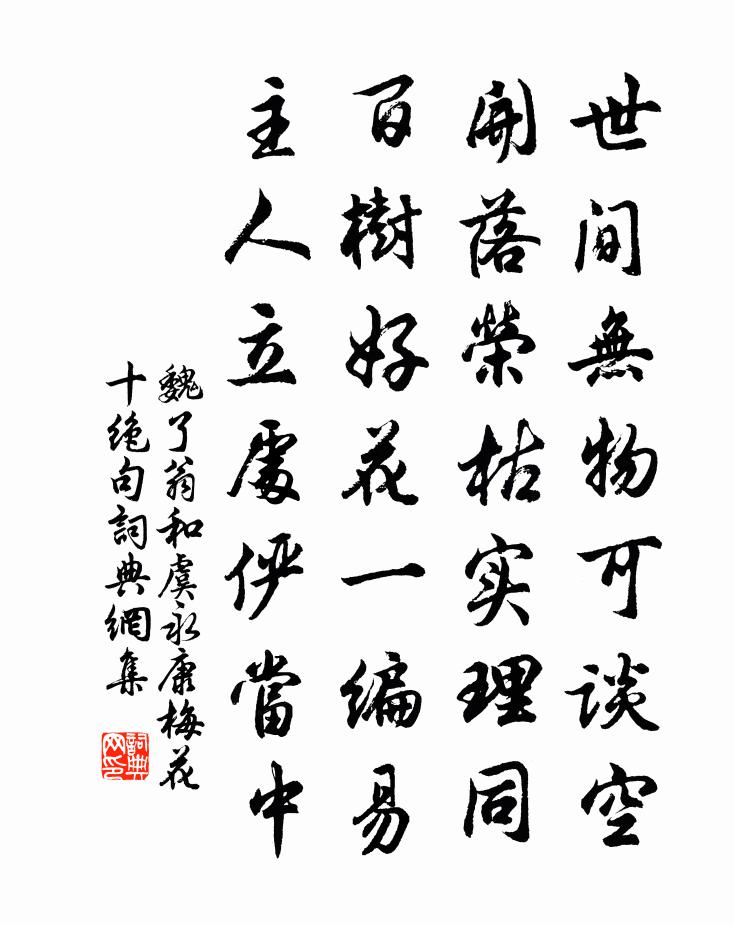 世間無物可谈空
開落榮枯实理同
百樹好花一编易
主人立處俨當中
魏了翁和虞永康梅花
十绝句詞典網集
詞典网印